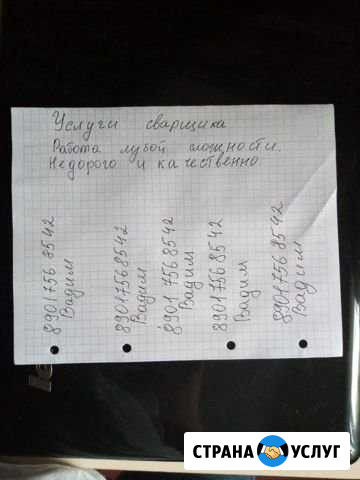 Услуги сварщика
Работа любой сложности.
Недорого и качественно
89017568542
Вадим
89017568542
Вадим
89017568542
Вадим
89017568542
Вадим
89017568542
Вадим
СТРАНА УСЛУГ